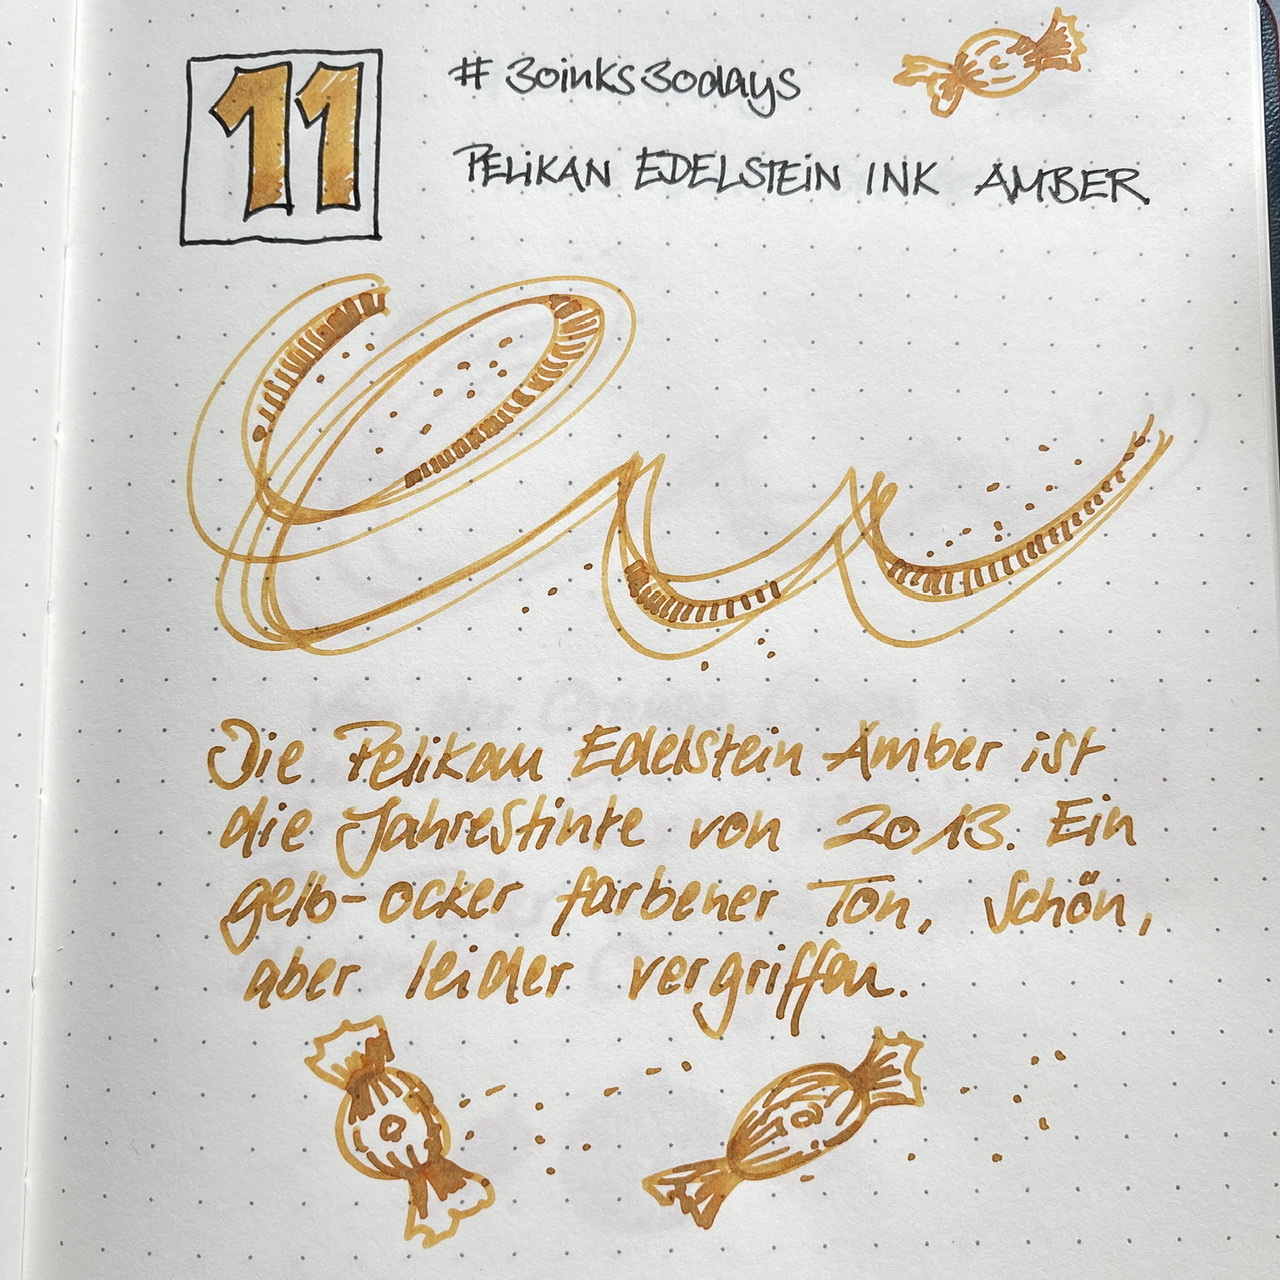 11
#30inks30days
PELIKAN EDELSTEIN INK AMBER
Die Pelikan Edelstein Amber ist
die Jahrestinte von 2013. Ein
gelb-ocker farbener Ton, schön,
aber leider vergriffen.